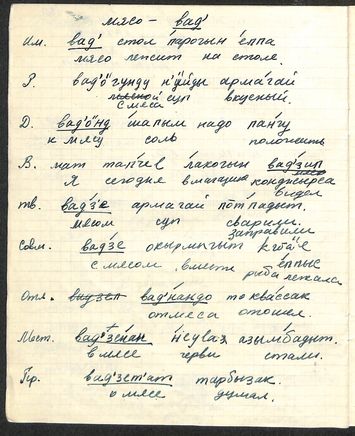 мясо – вад'
Им. вад' стол па́рочын е́ппа
мясо лежит на столе.
Р. вад'ӧ'гунду н'у́йды арма́гай
мясной суп вкусный.
с мяса
Д. вад'ӧ'нд шапым надо пангу
к мясу соль положить
В. мат тап'чев ла́когын вад'зип
Я сегодня в магазине мясо
видел
тв. вад'зе армагай по́тпадыт.
мясом суп сварили.
заправили
Совм. вад'зе окырмыгыт
с мясом вместе рыба лежала
е́ппык
Отл. вад'на́ндо то ква́ссак
от мяса отошел.
Мест. вад'зе́нан азы́мбадыт.
в мясе черви стали.
Пр. вад'зет'ат тарбызак.
о мясе думал.